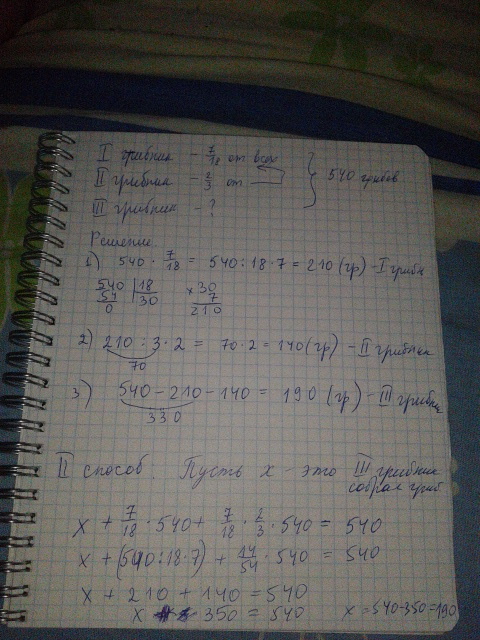 I грибник - 7/18 от всех
II грибник - 2/3 от
III грибник - ?
} 540 грибов
Решение.
1) 540 · 7/18 = 540 : 18 · 7 = 210 (гр) - I грибн
540 | 18
54 | 30
0
× 30
7
210
2) 210 : 3 · 2 = 70 · 2 = 140 (гр) - II грибника
70
3) 540 - 210 - 140 = 190 (гр) - III грибник
330
II способ. Пусть x - это III грибник
собрал гриб
x + 7/18 · 540 + 7/18 · 2/3 · 540 = 540
x + (540 : 18 · 7) + 14/54 · 540 = 540
x + 210 + 140 = 540
x 350 = 540 x = 540 - 350 = 190